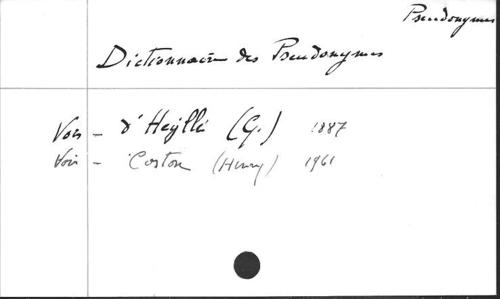 Pseudonymes
Dictionnaire des Pseudonymes
Voir - d'Heylli (G.) 1887
Voir - Coston (Henry) 1961